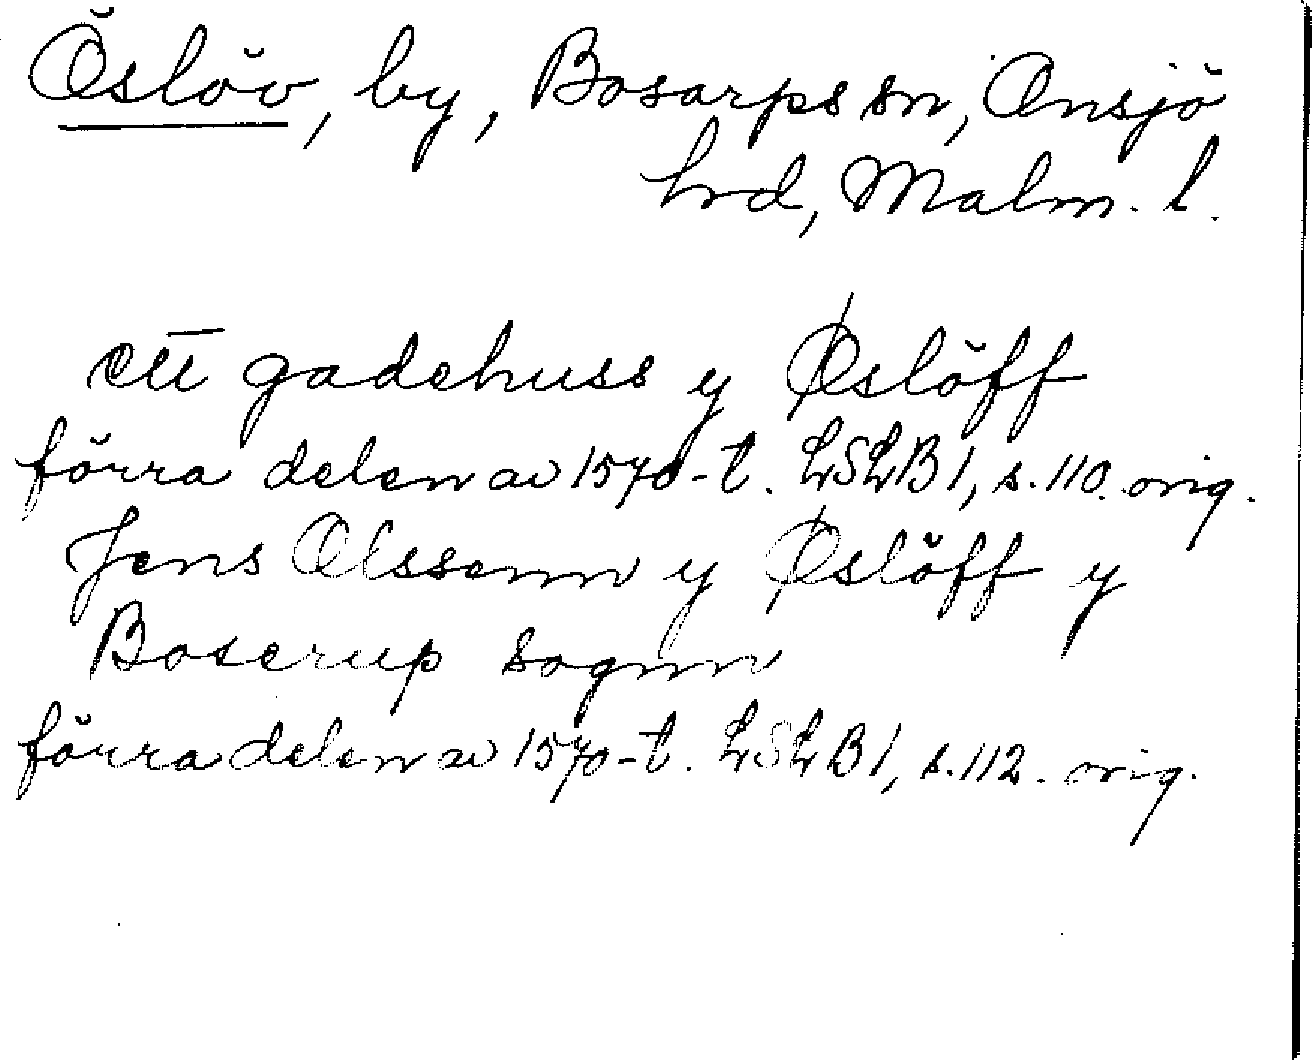 Öslöv, by, Bosarps sn, Onsjö
hrd, Malm. l.
ett gadehuss y Øslöff
förra delen av 1570-t. LSLB 1, s. 110. orig.
Jens Olssenn y Øslöff y
Boserup sognn
förra delen av 1570-t. LSLB 1, s. 112. orig.